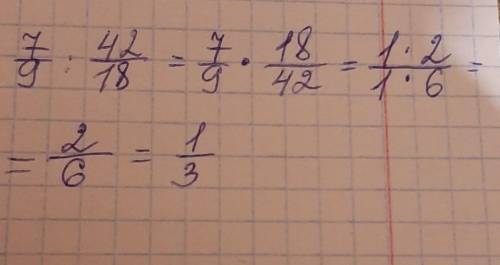 7/9 : 42/18 = 7/9 · 18/42 = 1·2/1·6 =
= 2/6 = 1/3